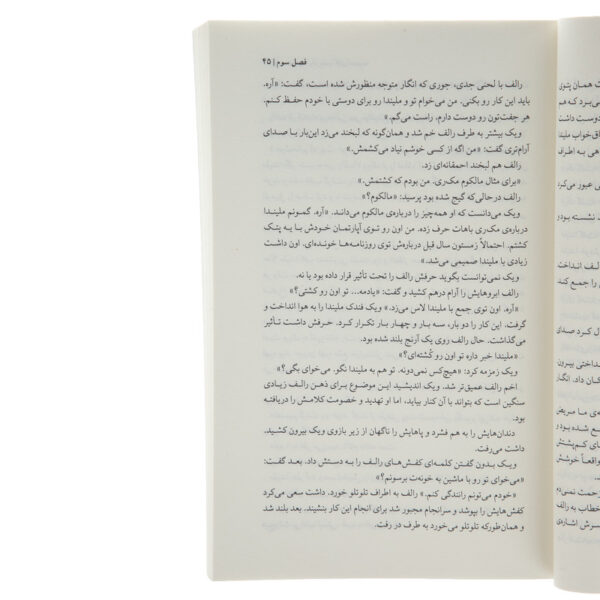 فصل سوم | ۴۵
رالف با لحنی جدی، جوری که انگار متوجه منظورش شده است، گفت: «آره.
باید این کار رو بکنی. من می‌خوام تو و ملیندا رو برای دوستی با خودم حفظ کنم.
هر جفت‌تون رو دوست دارم. راست می‌گم.»
ویک بیشتر به طرف رالف خم شد و همان‌گونه که لبخند می‌زد این‌بار با صدای
آرام‌تری گفت: «من اگه از کسی خوشم نیاد می‌کشمش.»
رالف هم لبخند احمقانه‌ای زد.
«برای مثال مالکوم مک‌ری. من بودم که کشتمش.»
رالف درحالی‌که گیج شده بود پرسید: «مالکوم؟»
ویک می‌دانست که او همه‌چیز را درباره‌ی مالکوم می‌داند. «آره. گمونم ملیندا
درباره‌ی مک‌ری باهات حرف زده. من اون رو توی آپارتمان خودش با یه پتک
کشتم. احتمالاً زمستون سال قبل درباره‌ش توی روزنامه‌ها خونده‌ای. اون داشت
زیادی با ملیندا صمیمی می‌شد.»
ویک نمی‌توانست بگوید حرفش رالف را تحت تأثیر قرار داده بود یا نه.
رالف ابروهایش را آرام درهم کشید و گفت: «یادمه... تو اون رو کشتی؟»
«آره. اون توی جمع با ملیندا لاس می‌زد.» ویک فندک ملیندا را به هوا انداخت و
گرفت. این کار را دو بار، سه بار و چهار بار تکرار کرد. حرفش داشت تأثیر
می‌گذاشت. حال رالف روی یک آرنج بلند شده بود.
«ملیندا خبر داره تو اون رو کُشته‌ای؟»
ویک زمزمه کرد: «هیچ‌کس نمی‌دونه. تو هم به ملیندا نگو. می‌خوای بگی؟»
اخم رالف عمیق‌تر شد. ویک اندیشید این موضوع برای ذهن رالف زیادی
سنگین است که بتواند با آن کنار بیاید، اما او تهدید و خصومت کلامش را دریافته
بود.
دندان‌هایش را به هم فشرد و پاهایش را ناگهان از زیر بازوی ویک بیرون کشید.
داشت می‌رفت.
ویک بدون گفتن کلمه‌ای کفش‌های رالف را به دستش داد. بعد گفت:
«می‌خوای تو رو با ماشین به خونه‌ت برسونم؟»
«خودم می‌تونم رانندگی کنم.» رالف به اطراف تلوتلو خورد. داشت سعی می‌کرد
کفش‌هایش را بپوشد و سرانجام مجبور شد برای انجام این کار بنشیند. بعد بلند شد
و همان‌طورکه تلوتلو می‌خورد به طرف در رفت.